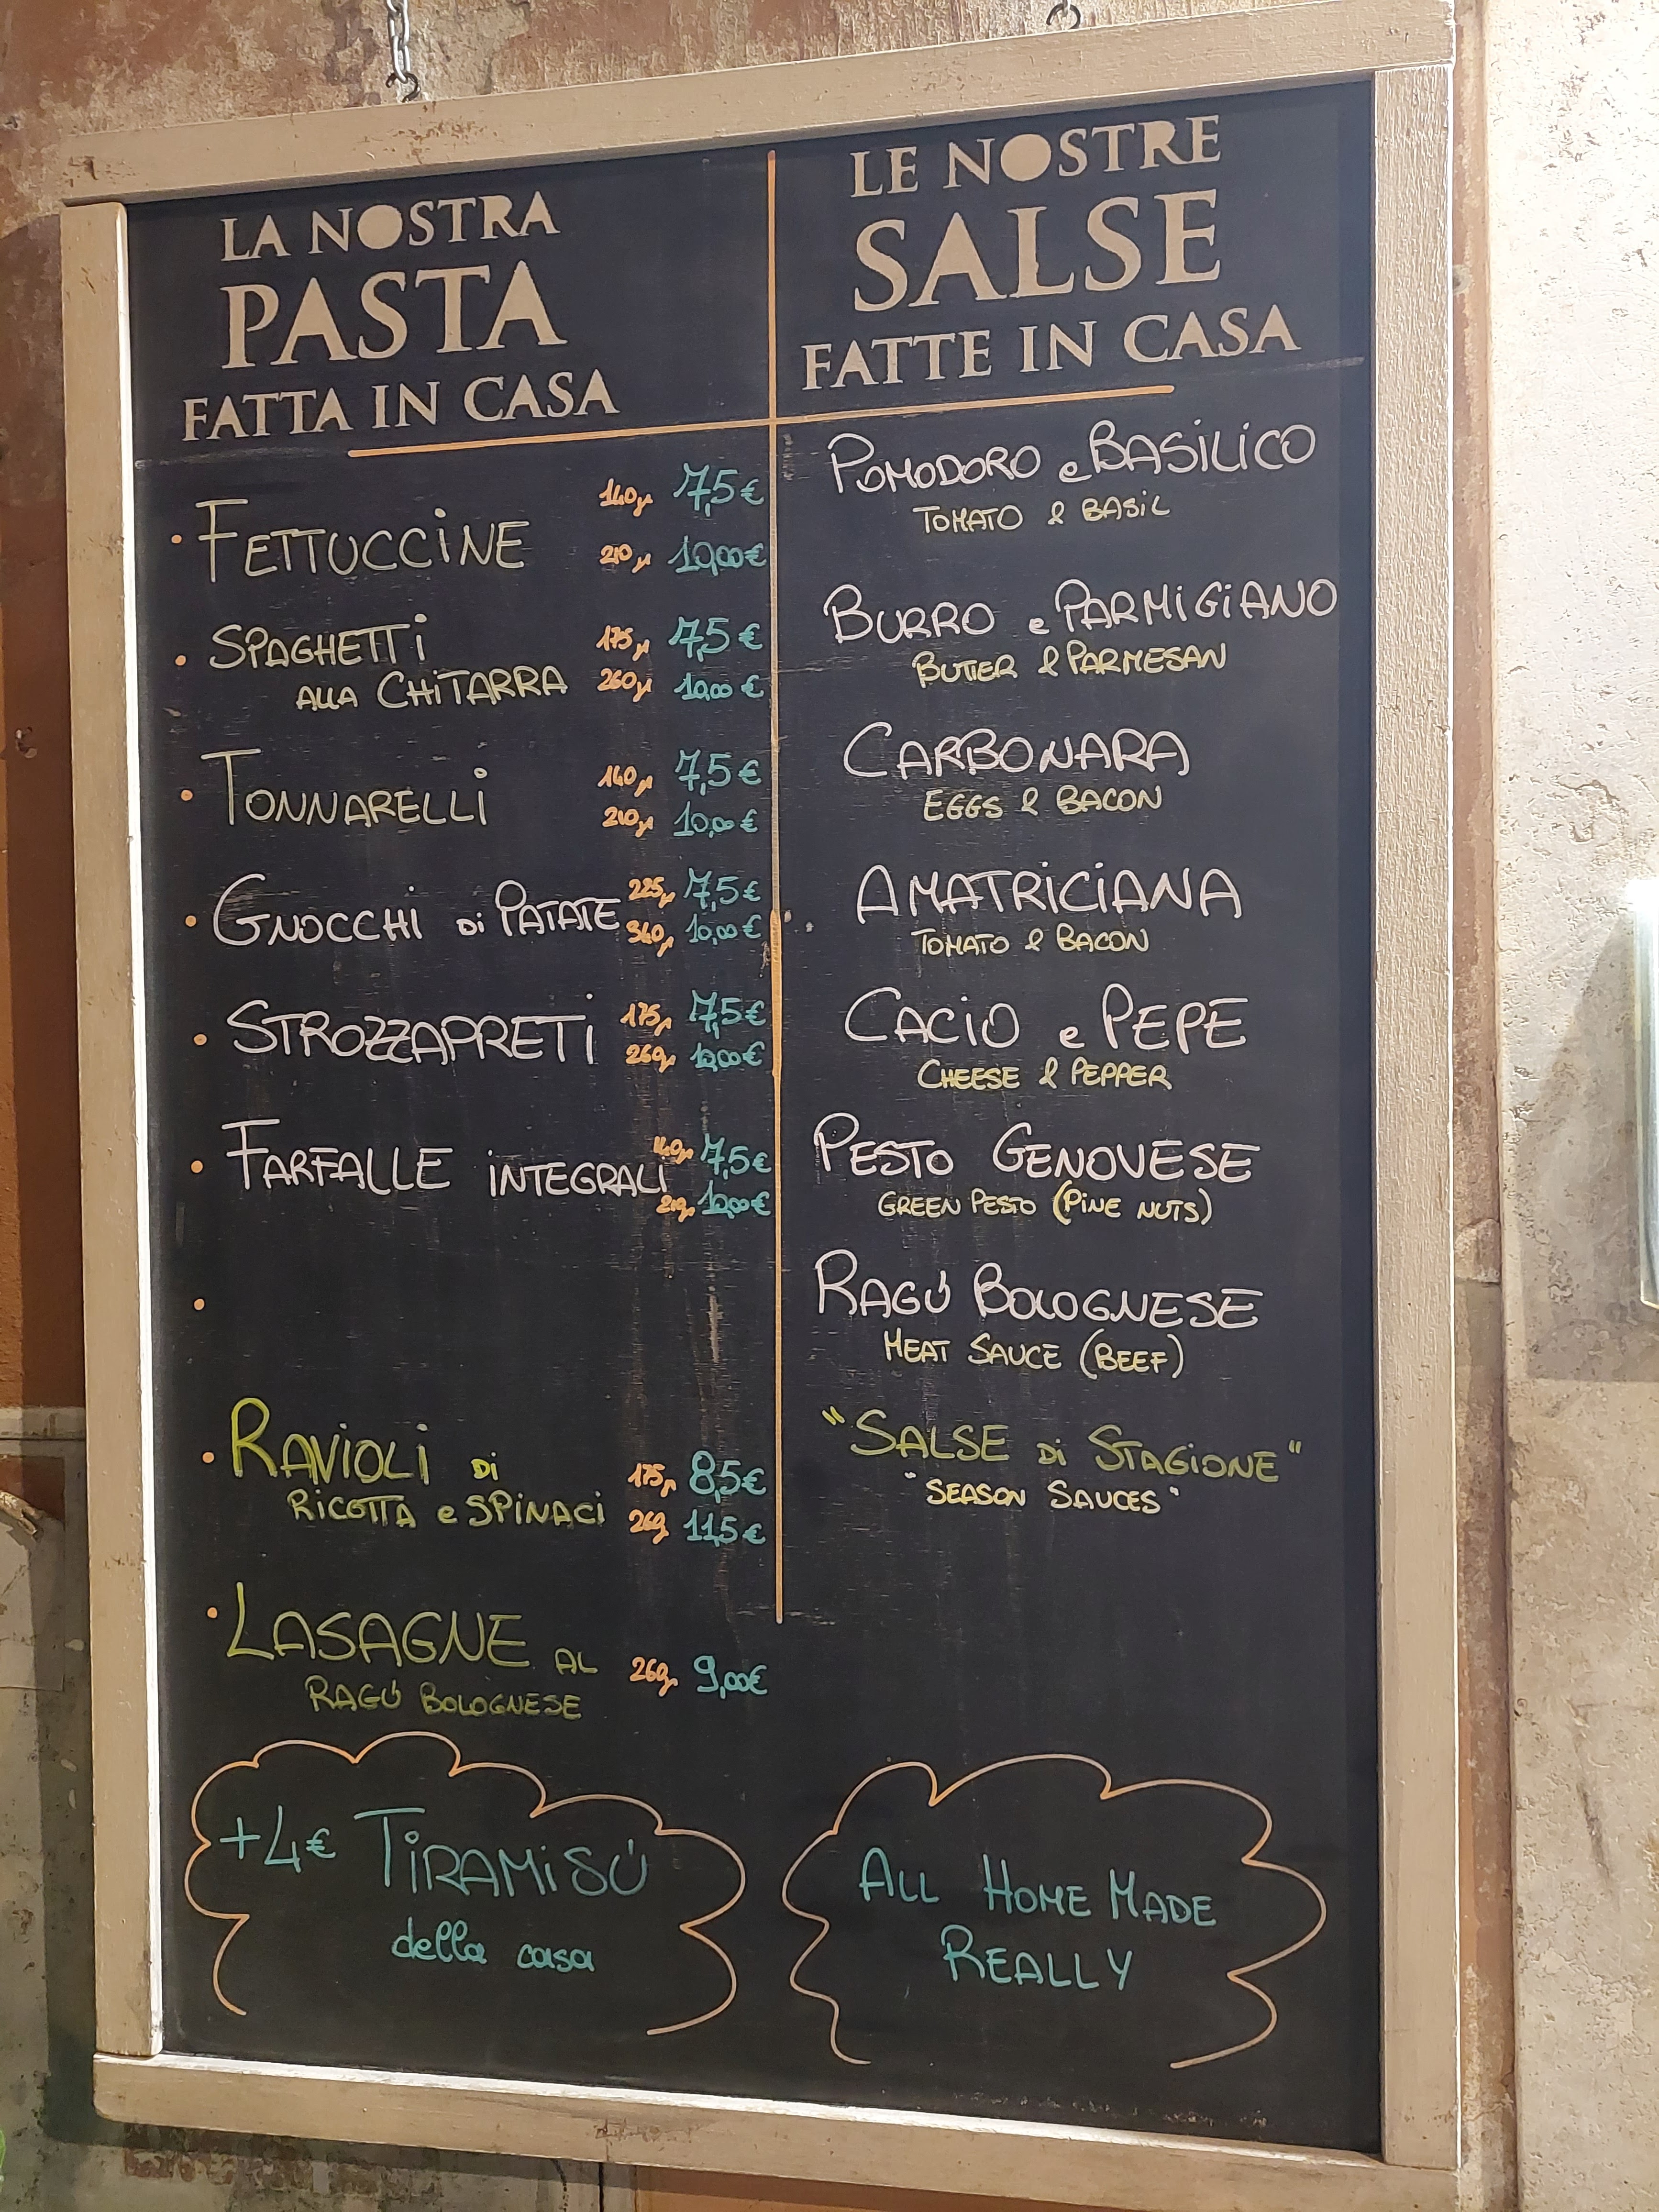 LA NOSTRA
PASTA
FATTA IN CASA
FETTUCCINE
140gr 7,5€
210gr 10,00€
SPAGHETTI
ALLA CHITARRA
175gr 7,5€
260gr 10,00€
TONNARELLI
140gr 7,5€
210gr 10,00€
GNOCCHI di PATATE
225gr 7,5€
340gr 10,00€
STROZZAPRETI
175gr 7,5€
260gr 10,00€
FARFALLE INTEGRALI
140gr 7,5€
210gr 10,00€
RAVIOLI Di
RICOTTA e SPINACI
175gr 8,5€
260gr 11,5€
LASAGNE AL
RAGÚ BOLOGNESE
260gr 9,00€
+4€ TIRAMISÚ
della casa
LE NOSTRE
SALSE
FATTE IN CASA
POMODORO e BASILICO
TOMATO & BASIL
BURRO e PARMIGIANO
BUTTER & PARMESAN
CARBONARA
EGGS & BACON
AMATRICIANA
TOMATO & BACON
CACIO e PEPE
CHEESE & PEPPER
PESTO GENOVESE
GREEN PESTO (PINE NUTS)
RAGÚ BOLOGNESE
MEAT SAUCE (BEEF)
"SALSE Di STAGIONE"
"SEASON SAUCES"
ALL HOME MADE
REALLY